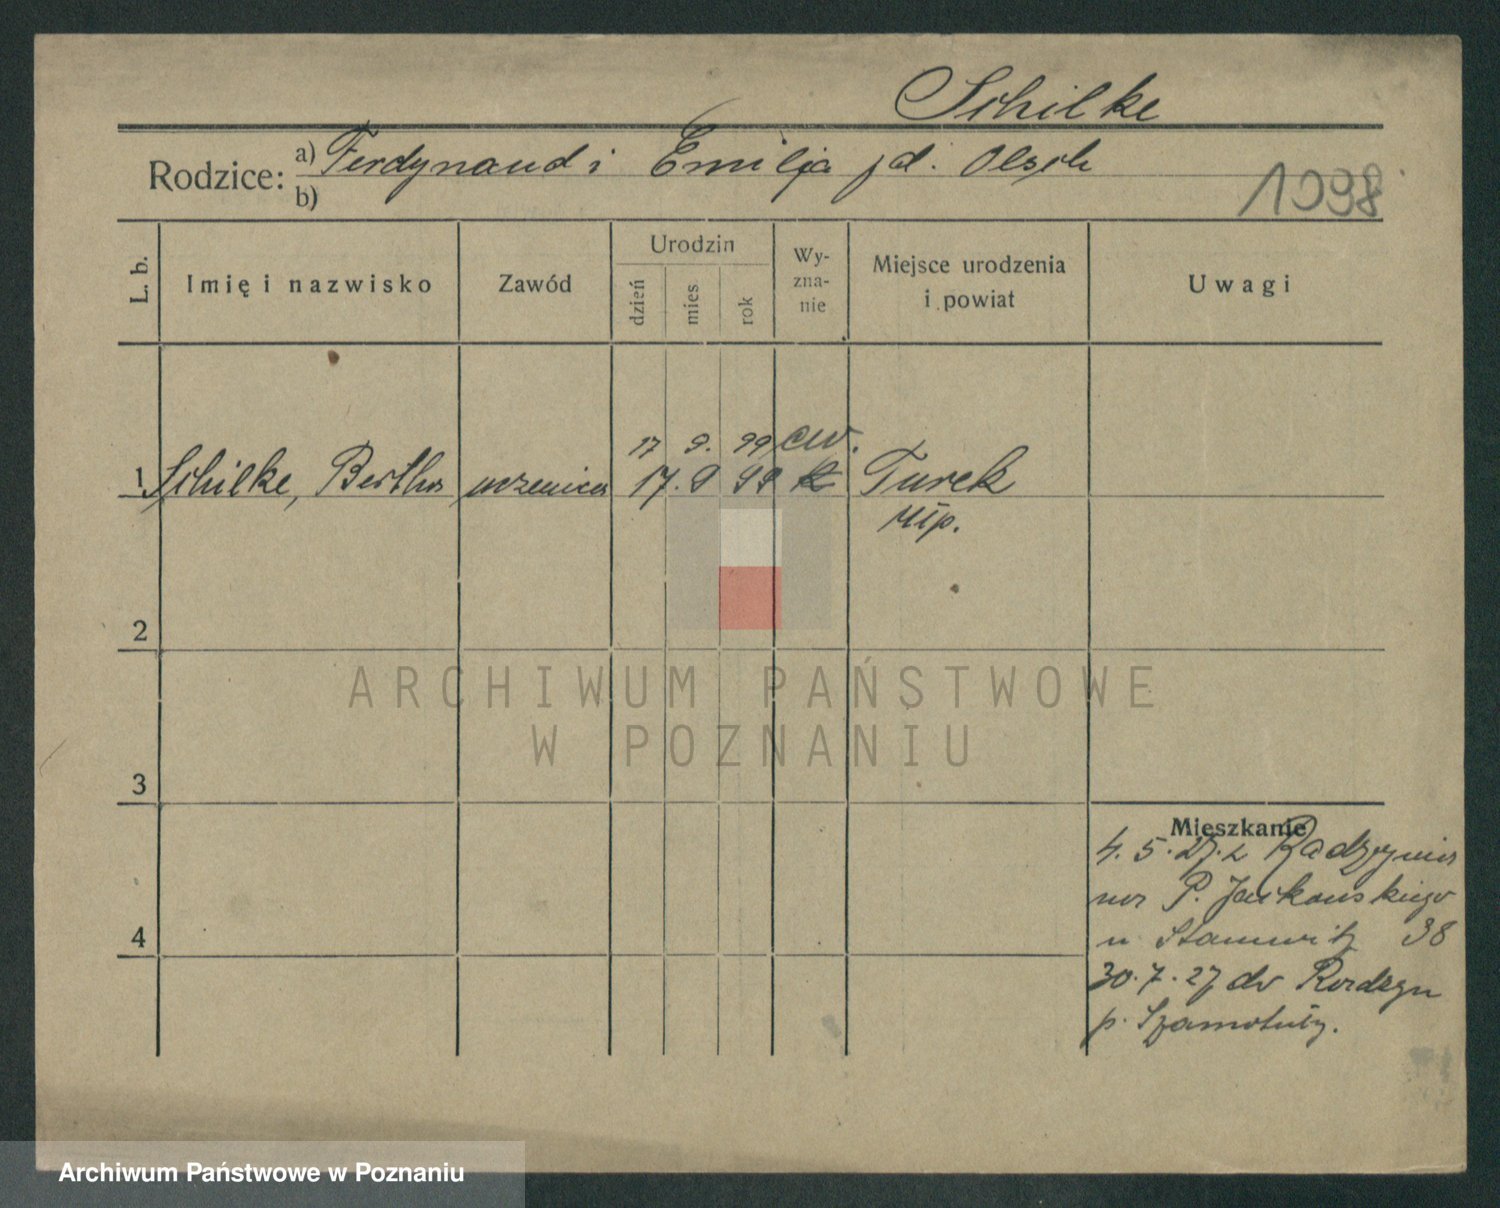 Schilke
Rodzice: a) Ferdynand i Emilja z d. Olsch
b)
1098
L. b. Imię i nazwisko Zawód Urodzin dzień mies rok Wy-zna-nie Miejsce urodzenia i powiat Uwagi
17 9. 99 ew.
1 Schilke, Bertha uczenica 17. 9 99 k Turek
Nip.
2
3
4
Mieszkanie
4. 5. 27. z Radzyna
P. Jackowskiego
u 38
30. 7. 27 do Radzyn
p. Szamotuły.
ARCHIWUM PAŃSTWOWE
W POZNANIU
Archiwum Państwowe w Poznaniu